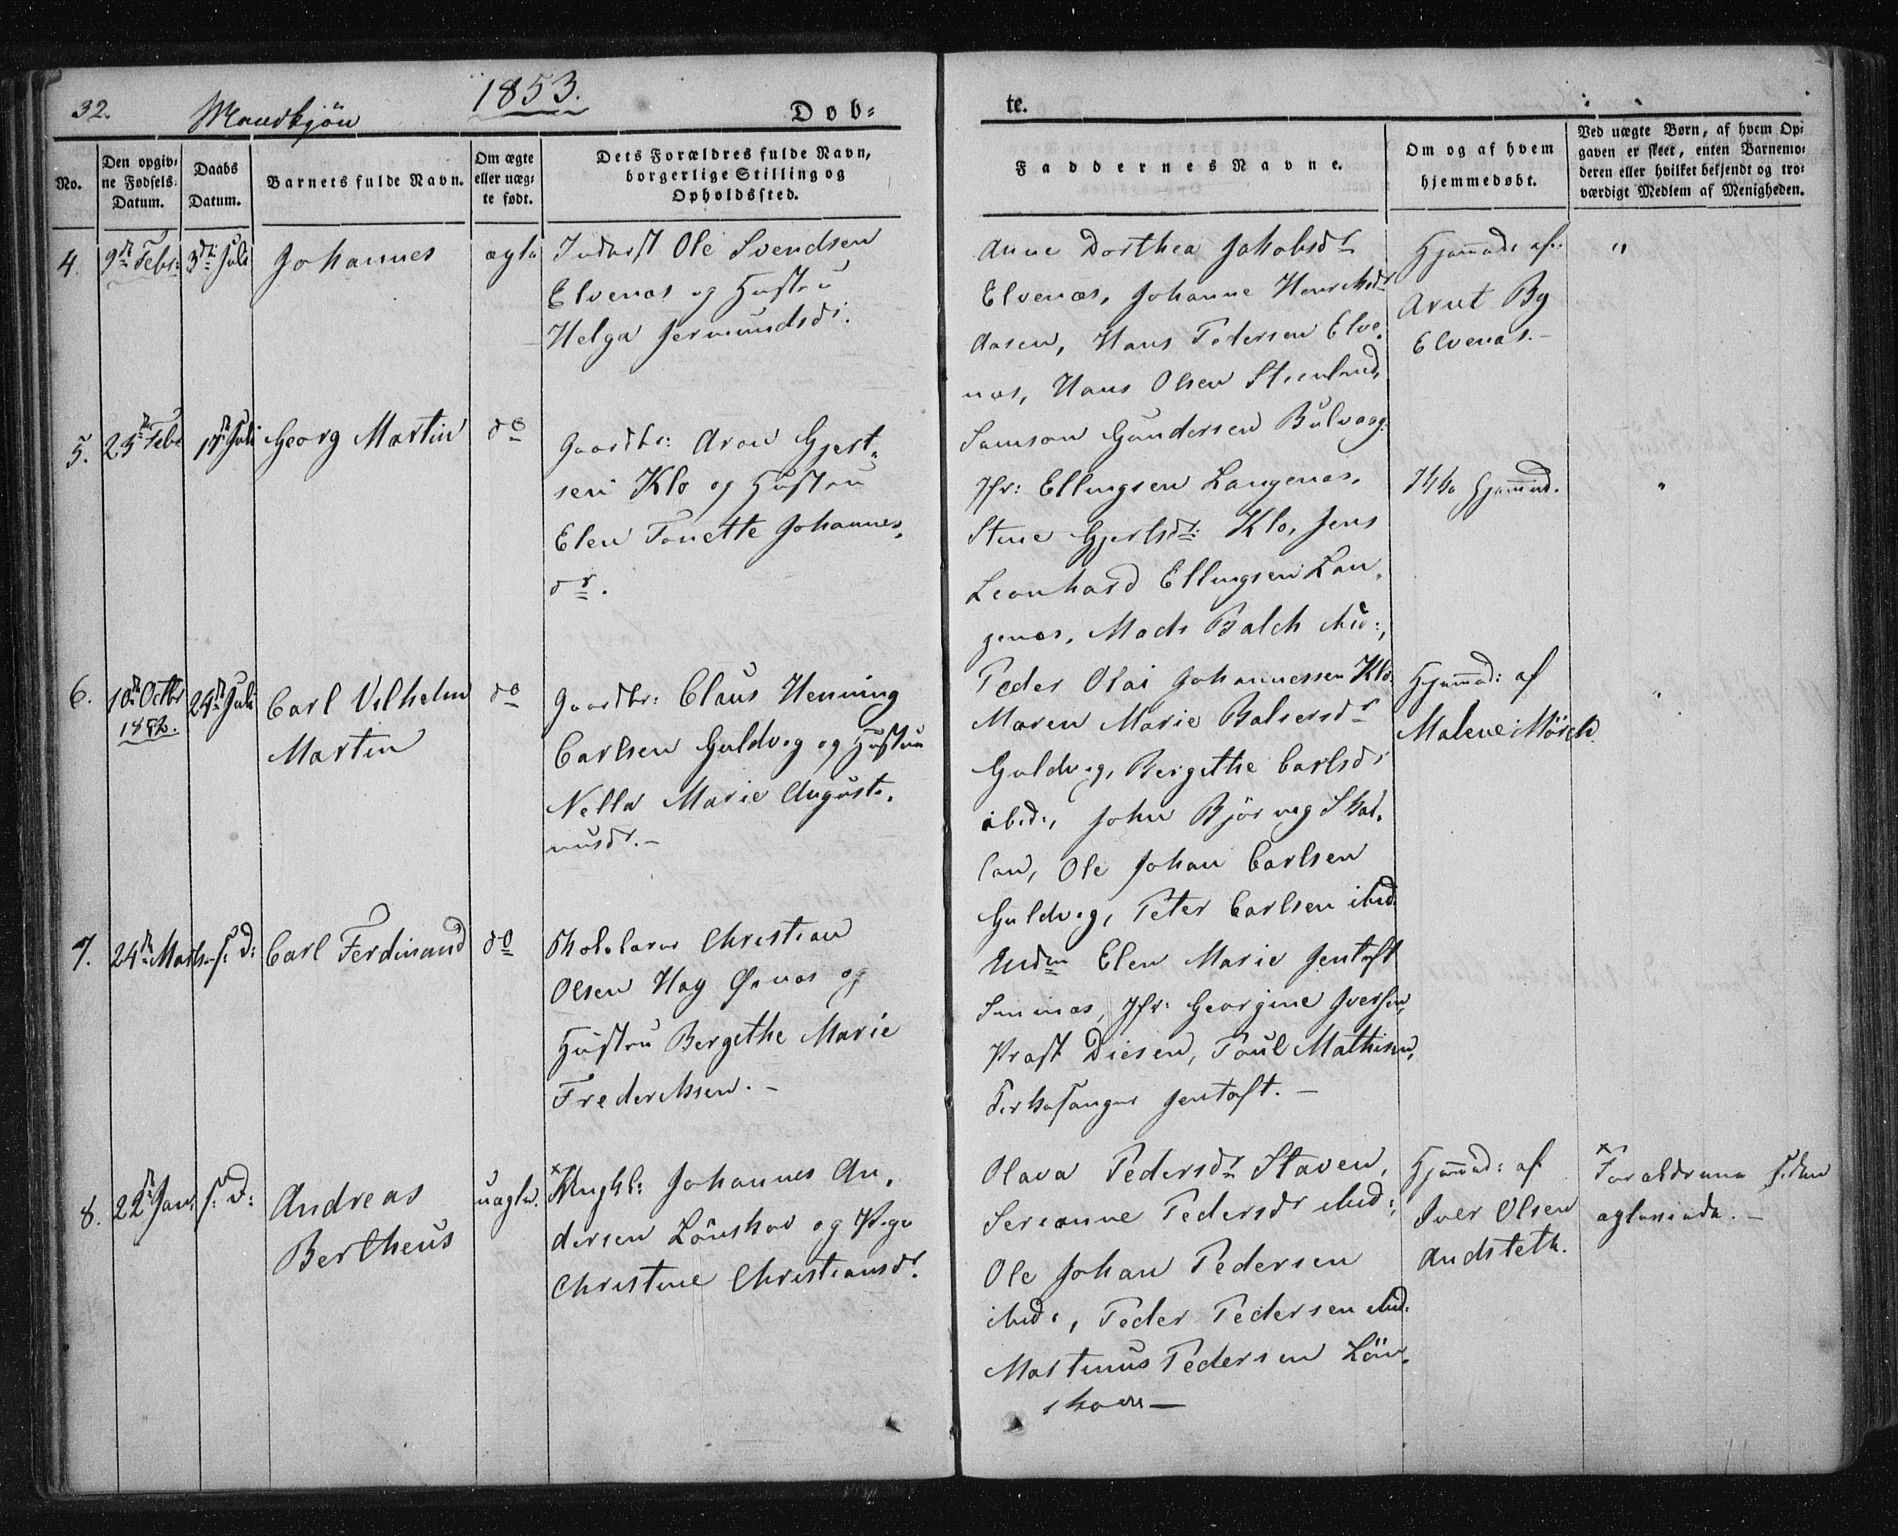 32.
Mandkjön
1853.
Dob=
te.
No.
Den opgiv=
ne Fødsels=
Datum.
Daabs
Datum.
Barnets fulde Navn.
Om ægte
eller uæg=
te født.
Dets Forældres fulde Navn,
borgerlige Stilling og
Opholdssted.
Faddernes Navne.
Om og af hvem
hjemmedøbt.
Ved uægte Børn, af hvem Op=
gaven er skeet, enten Barnemo=
deren eller hvilket bekjendt og tro=
værdigt Medlem af Menigheden.
4.
9de Febr:
3die Juli
Johannes
ægte
Inderst Ole Svendsen
Elvenæs og Hustru
Helga Jermundsdr.
Anne Dorthea Jakobsdr
Elvenæs, Johanne Henriksdr
Aasen, Hans Pedersen Elve
næs, Hans Olsen Steenland,
Samson Gundersen Bulvaag.
Hjemmed: af
Arnt By
Elvenæs.
"
5.
25de Febr
17de Juli
Georg Martin
do
Gaardbr: Aron Gjert=
sen Klo og Hustru
Elen Tonette Johannes,
dr.
Jfr: Ellingsen Langenæs,
Stine Gjertsdr: Klo, Jens
Leonhard Ellingsen Lan,
genæs, Mads Balch ibid:,
Peder Olai Johannessen Klo
Ikke Hjemmed.
"
6.
10de Octbr
1852.
24de Juli
Carl Vilhelm
Martin
do
Gaardbr: Claus Henning
Carlsen Guldvig og Hustru
Nella Marie Augusti,
nusdr.
Maren Marie Balsersdr
Guldvig, Bergethe Carlsdr
ibid:, John Bjørvig Skal,
len, Ole Johan Carlsen
Guldvig, Peter Carlsen ibid.
Hjemmed: af
Malene Mörch
7.
24de Marts
s: D:
Carl Ferdinand
do
Skolelærer Christian
Olsen Hay Øxnæs og
Hustru Bergethe Marie
Frederiksen.
Madm Elen Marie Jentoft
Jfr: Georgine Iversen,
Præst Diesen, Poul Mathisen,
Kirkesanger Jentoft.
8.
22de Jan:
s: D:
Andreas
Bertheus
uægte.
x Ungkl: Johannes An,
dersen Lönskov og Pige
Christine Christiansdr.
Olava Pedersdr Staven,
Serianne Pedersdr ibid:,
Ole Johan Pedersen
ibid:, Peder Pedersen ibid:
Martinus Pedersen Lön,
skov
Hjemmed: af
Iver Olsen
Andsteth.
x Forældrene siden
ægteviede.